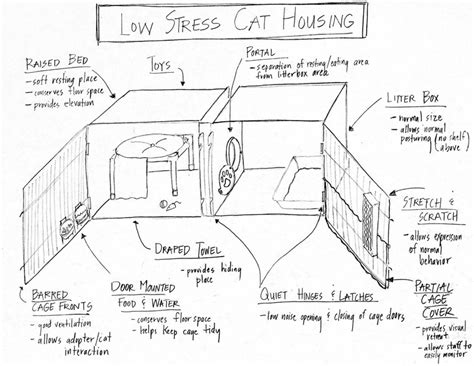 LOW STRESS CAT HOUSING
RAISED BED
- soft resting place
- conserves floor space
- provides elevation
TOYS
PORTAL
- separation of resting/eating area
from litterbox area
LITTER BOX
- normal size
- allows normal
posturing (no shelf
above)
STRETCH &
SCRATCH
- allows expression
of normal
behavior
PARTIAL
CAGE
COVER
- provides visual
retreat
- allows staff to
easily monitor
DRAPED TOWEL
- provides hiding
place
QUIET HINGES & LATCHES
- low noise opening & closing of cage doors
DOOR MOUNTED
FOOD & WATER
- conserves floor space
- helps keep cage tidy
BARRED
CAGE FRONTS
- good ventilation
- allows adopter/cat
interaction